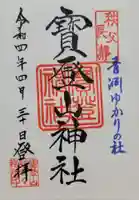 秩父
長瀞
青淵ゆかりの社
寳登山神社
令和四年四月三十日登拝